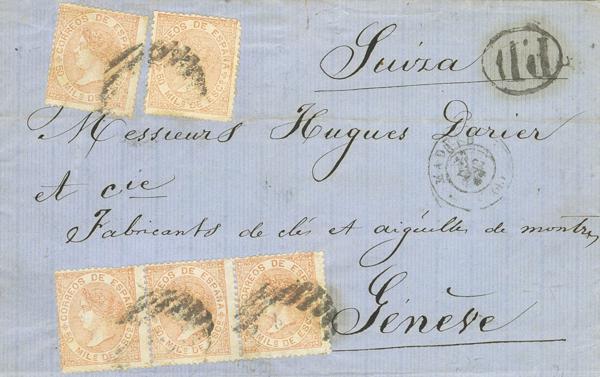 CORREOS DE ESPAÑA
50 MILS DE ESCO
CORREOS DE ESPAÑA
50 MILS DE ESCO
Suiza
P.D
Messieurs Hugues Darier
MADRID
et cie
Fabricants de clés et aigúilles de montres
CORREOS DE ESPAÑA
50 MILS DE ESCO
CORREOS DE ESPAÑA
50 MILS DE ESCO
CORREOS DE ESPAÑA
50 MILS DE ESCO
Génève